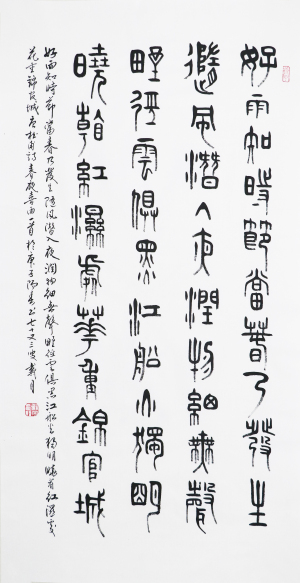 好雨知時節當春乃發生
隨風潛入夜潤物細無聲
野徑雲俱黑江船火獨明
曉看紅濕處華重錦官城
好雨知時節當春乃發生隨風潛入夜潤物細無聲野徑雲俱黑江船火獨明曉看紅濕處
花重錦官城唐杜甫詩春夜喜雨首於庚子